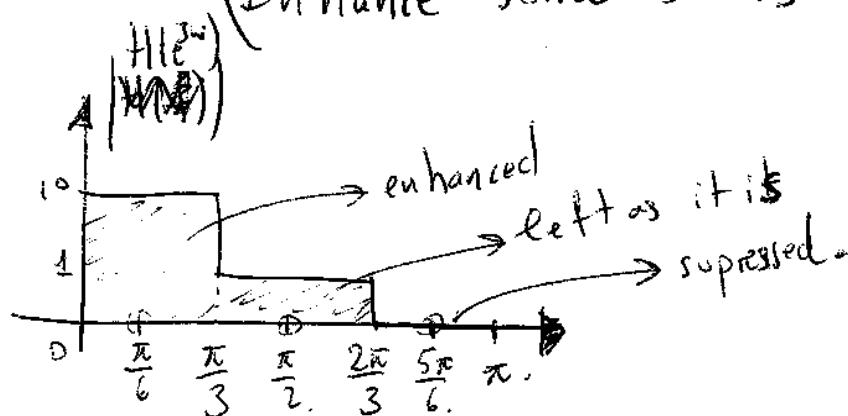 (Enhance some
|H(e^jω)|
10
enhanced
1
left as it is
supressed.
0 π/6 π/3 π/2. 2π/3 5π/6. π.